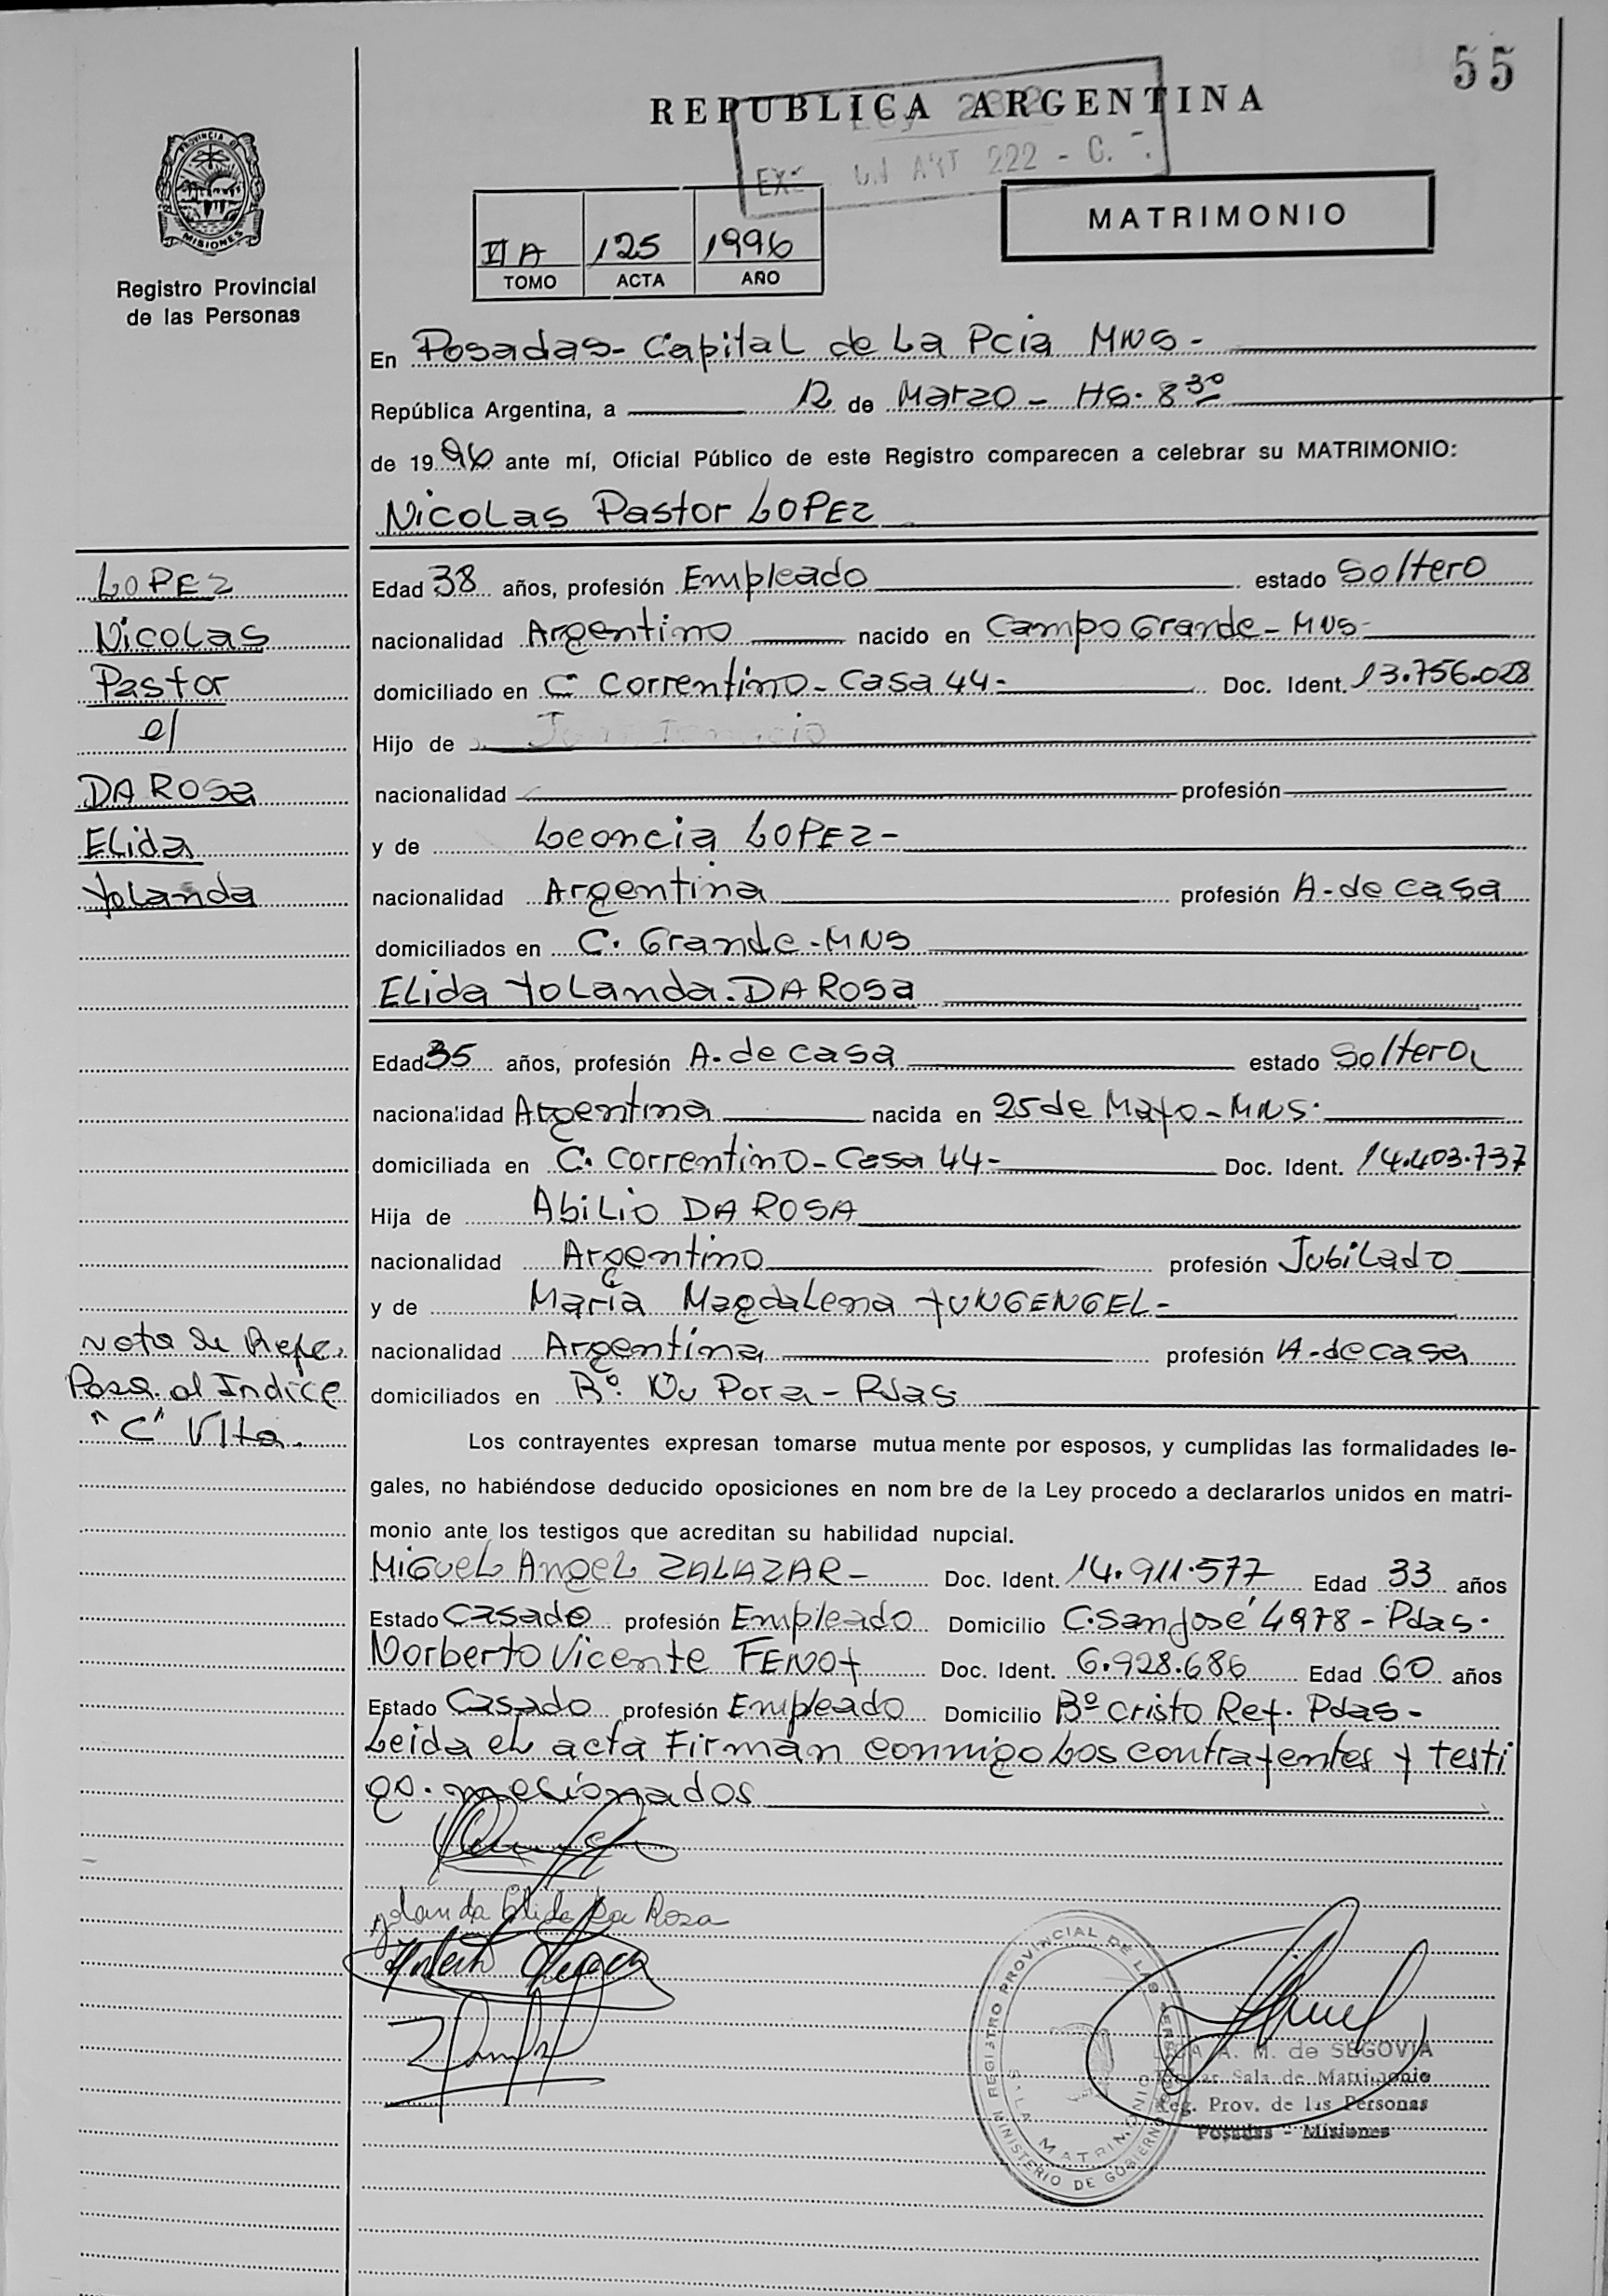 55
REPUBLICA ARGENTINA
ART 222 - C.
MATRIMONIO
II A 125 1996
TOMO ACTA AÑO
PROVINCIA D
MISIONES
Registro Provincial
de las Personas
En Posadas- Capital de La Pcia MNS-
República Argentina, a 12 de Marzo - HS. 8 30
de 1996 ante mí, Oficial Público de este Registro comparecen a celebrar su MATRIMONIO:
Nicolas Pastor LOPEZ
LOPEZ
Nicolas
Pastor
e/
DA ROSa
ELida
YoLanda
Edad 38 años, profesión Empleado estado Soltero
nacionalidad Argentino nacido en Campo Grande-MNS-
domiciliado en C. Correntino-Casa 44- Doc. Ident. 13.756.028
Hijo de
nacionalidad profesión
y de Leoncia LOPEZ-
nacionalidad Argentina profesión A-de casa
domiciliados en C. Grande-MNS
ELida YoLanda.DA ROSa
Edad 35 años, profesión A.de casa estado Soltera
nacionalidad Argentina nacida en 25 de Mayo-MNS.
domiciliada en C. Correntino-Casa 44- Doc. Ident. 14.403.737
Hija de AbiLio DA ROSA
nacionalidad Argentino profesión JubiLado
y de María MagdaLena YUNGENGEL-
nacionalidad Argentina profesión A-de casa
domiciliados en Bº. Ñu Pora-Pdas
Nota de Refe.
Pasa al Indice
"C" Vlta.
Los contrayentes expresan tomarse mutua mente por esposos, y cumplidas las formalidades le-
gales, no habiéndose deducido oposiciones en nom bre de la Ley procedo a declararlos unidos en matri-
monio ante los testigos que acreditan su habilidad nupcial.
MiGueL AngeL ZALAZAR- Doc. Ident. 14.911.577 Edad 33 años
Estado Casado profesión Empleado Domicilio C.San José 4978-Pdas.
Norberto Vicente FENOY Doc. Ident. 6.928.686 Edad 60 años
Estado Casado profesión Empleado Domicilio Bº Cristo Rey. Pdas-
Leida eL acta Firman conmigo Los contrayentes y testi
go. mesionados
Yolanda Elida Da Rosa
REGISTRO PROVINCIAL DE LAS PERSONAS
SALA MATRIMONIO
MINISTERIO DE GOBIERNO
A. M. de SEGOVIA
Sala de Matrimonio
Reg. Prov. de las Personas
Posadas - Misiones